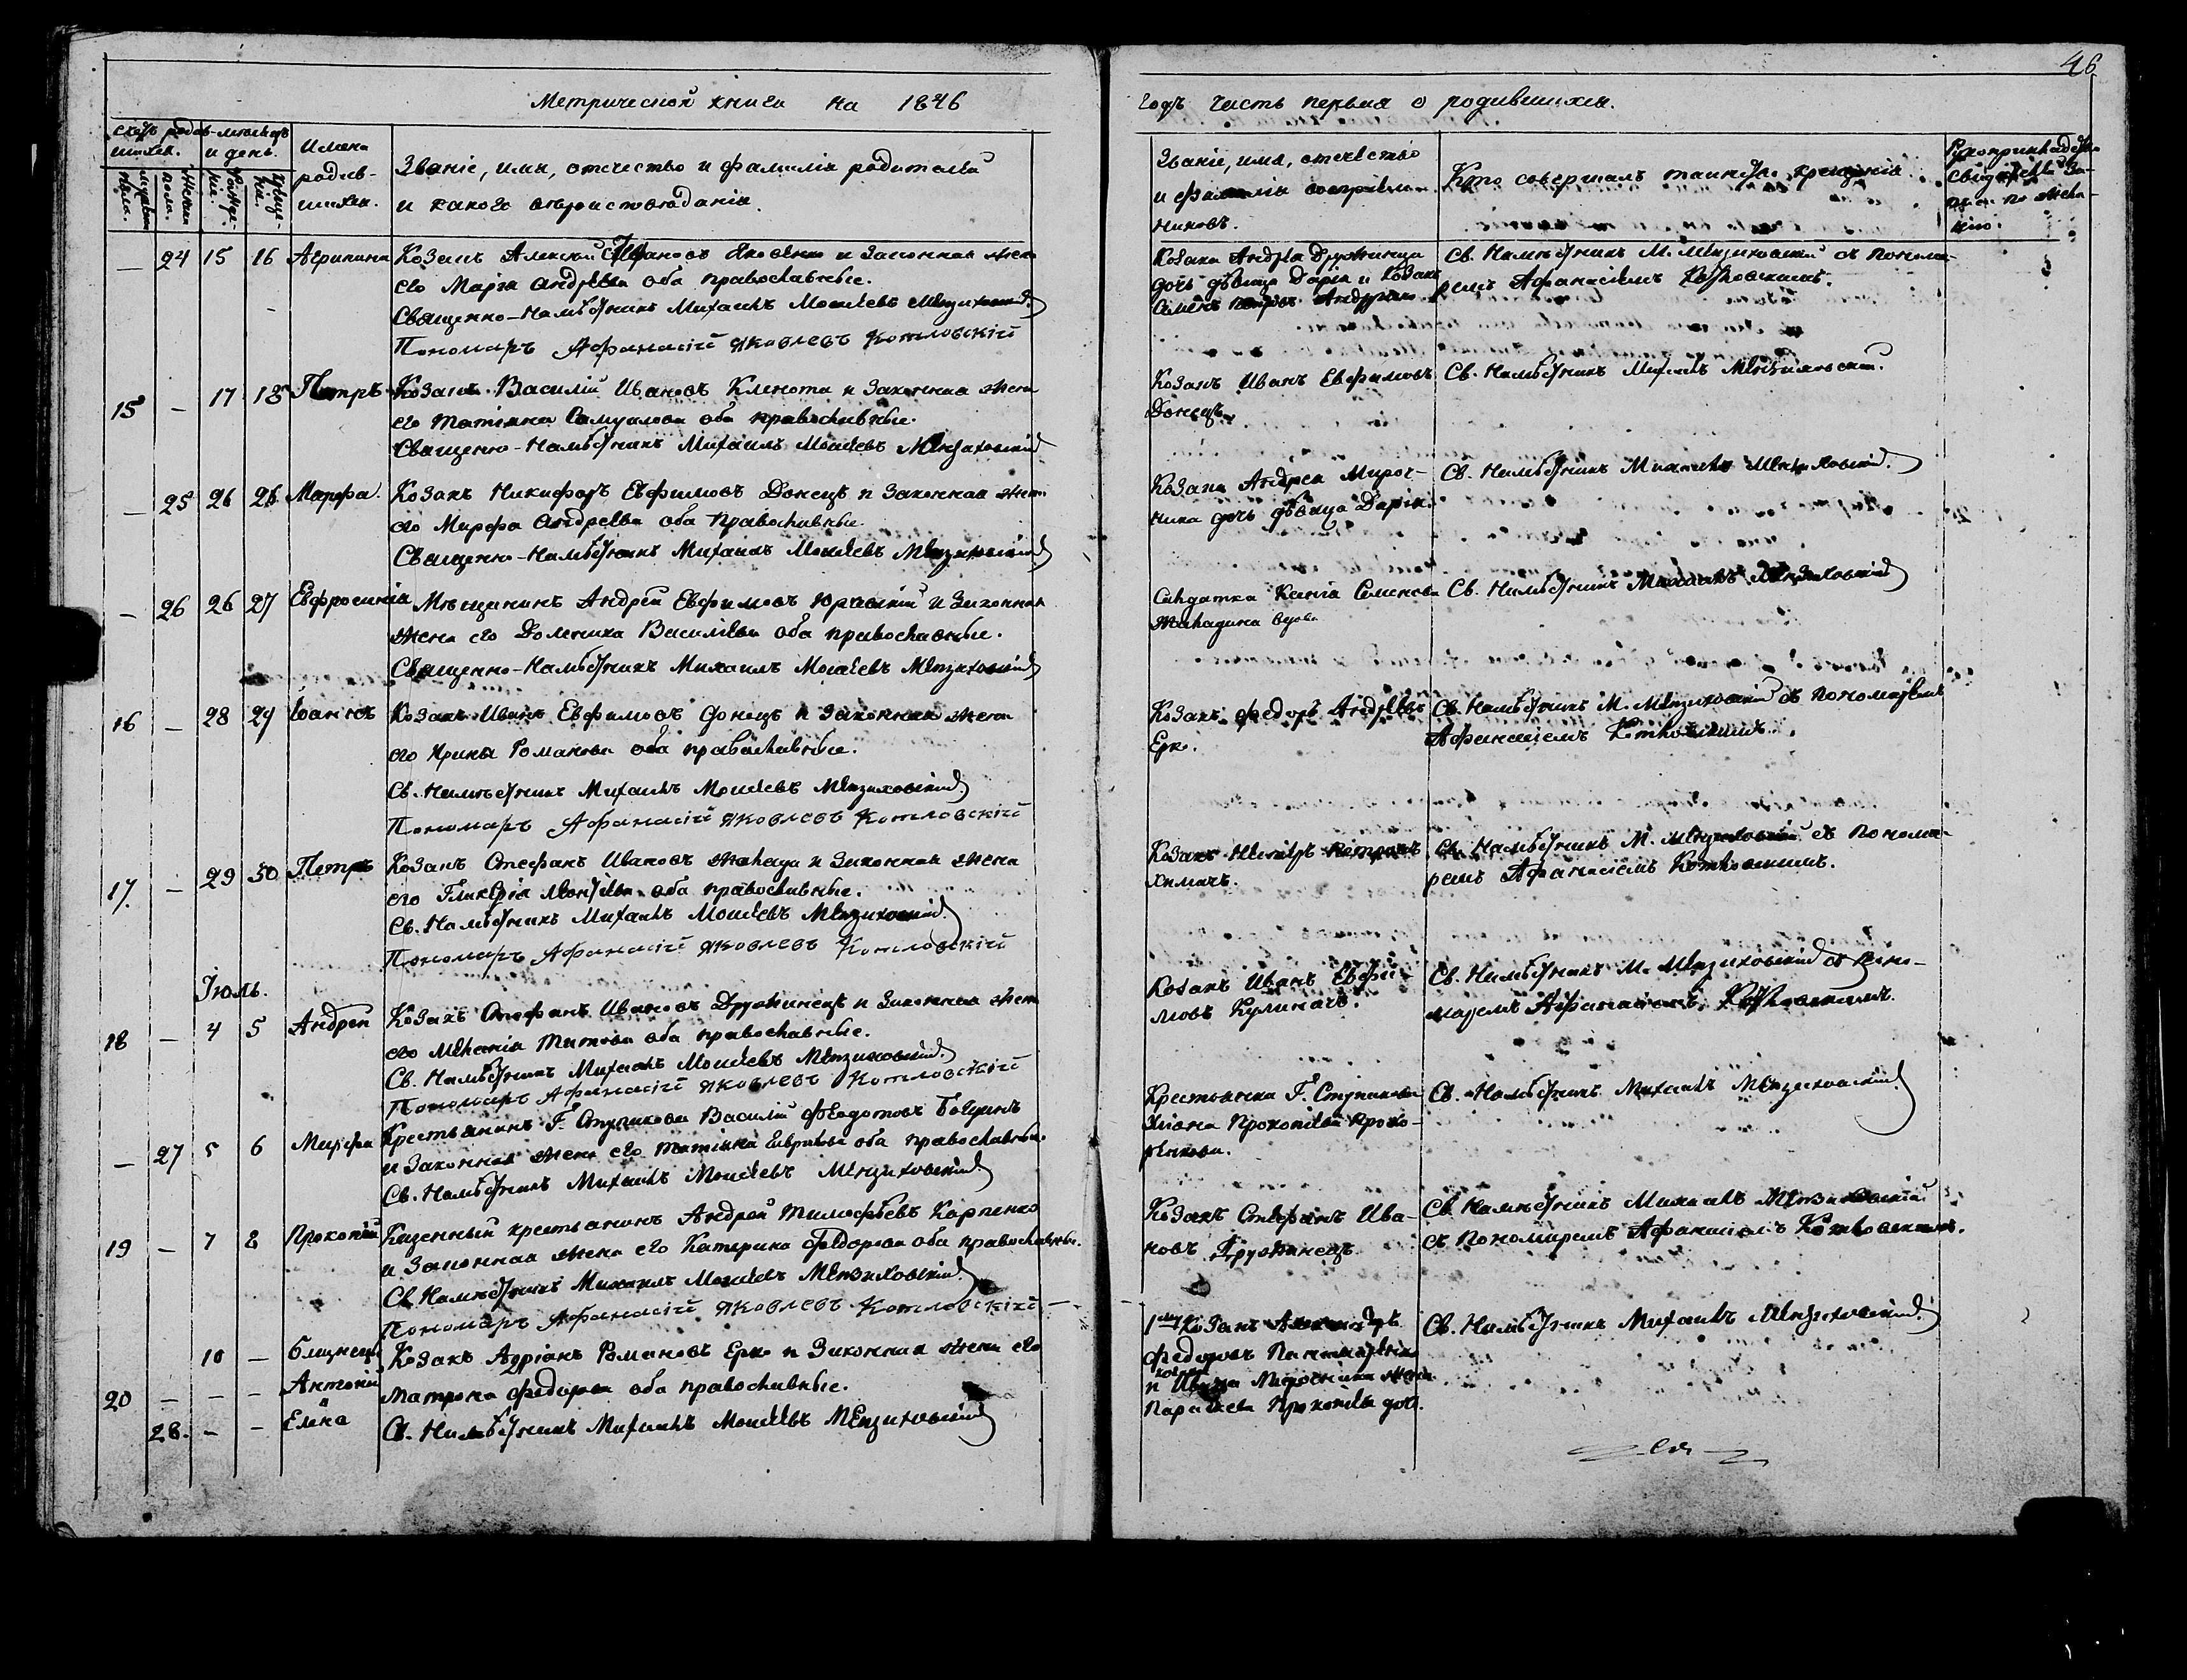 46
Метрической книги на 1846
годъ часть первая о родившихся.
счетъ родив- мѣсяцъ
шихся. и день.
Имена
родив-
шихся.
мужеска
пола.
женска
пола.
рожде-
нія.
креще-
нія.
Званіе, имя, отечество и фамилія родителей
и какого вѣроисповѣданія.
Званіе, имя, отечество
и фамилія воспріем-
никовъ.
Кто совершалъ таинство крещенія
Рукоприкладство
свидѣтелей за-
писи по жела-
нію.
— 24 15 16 Агрипина Козакъ Алексій Степановъ Яковенко и Законная жена
его Марія Андреева оба православные.
Священно-Намѣстникъ Михаилъ Моисеевъ Мензиховскій
Пономарь Афанасій Яковлевъ Котловскій
Козака Андрея Дружинца
дочь дѣвица Дарія и Козакъ
Семенъ Петровъ
Св. Намѣстникъ М. Мензиховскій съ понома-
ремъ Афанасіемъ Котловскимъ.
15 — 17 18 Петръ Козакъ Василій Ивановъ Клекота и Законная жена
его Татіяна Самуилова оба православные.
Священно-Намѣстникъ Михаилъ Моисеевъ Мензиховскій
Козакъ Иванъ Евфимовъ
Донецъ.
Св. Намѣстникъ Михаилъ Мензиховскій.
— 25 26 26 Марфа. Козакъ Никифоръ Евфимовъ Донецъ и Законная жена
его Марфа Андреева оба православные.
Священно-Намѣстникъ Михаилъ Моисеевъ Мензиховскій
Козака Андрея Мирош-
ника дочь дѣвица Дарія.
Св. Намѣстникъ Михаилъ Мензиховскій.
— 26 26 27 Евфросинія Мѣщанинъ Андрей Евфимовъ Юрскій и Законная
жена его Доменика Василіева оба православные.
Священно-Намѣстникъ Михаилъ Моисеевъ Мензиховскій
Солдатка Ксенія Семенова
вдова
Св. Намѣстникъ Михаилъ Мензиховскій
16 — 28 29 Іоаннъ Козакъ Иванъ Евфимовъ Донецъ и Законная жена
его Ирина Романова оба православные.
Св. Намѣстникъ Михаилъ Моисеевъ Мензиховскій
Пономарь Афанасій Яковлевъ Котловскій
Козакъ Федоръ Андреевъ
Ерко.
Св. Намѣстникъ М. Мензиховскій съ Пономаремъ
Афанасіемъ Котловскимъ.
17. — 29 30 Петръ Козакъ Стефанъ Ивановъ Жагада и Законная жена
его Гликерія оба православные.
Св. Намѣстникъ Михаилъ Моисеевъ Мензиховскій
Пономарь Афанасій Яковлевъ Котловскій
Козакъ
Химичъ.
Св. Намѣстникъ М. Мензиховскій съ Понома-
ремъ Афанасіемъ Котловскимъ.
Іюль.
18 — 4 5 Андрей Козакъ Стефанъ Ивановъ Дружинецъ и Законная жена
его Меланія Титова оба православные.
Св. Намѣстникъ Михаилъ Моисеевъ Мензиховскій
Пономарь Афанасій Яковлевъ Котловскій
Козакъ Иванъ Евфи-
мовъ Кулиначъ.
Св. Намѣстникъ М. Мензиховскій съ Поно-
маремъ Афанасіемъ Котловскимъ.
— 27 5 6 Марфа Крестьянинъ Г. Ступикова Василій Феодотовъ
и Законная жена его Татіяна оба православные.
Св. Намѣстникъ Михаилъ Моисеевъ Мензиховскій
Крестьянка Г. Ступикова
Прокопіева
Св. Намѣстникъ Михаилъ Мензиховскій
19 — 7 8 Прокопій Казенный крестьянинъ Андрей Тимофѣевъ Карпенко
и Законная жена его Катерина Федорова оба православные.
Св. Намѣстникъ Михаилъ Моисеевъ Мензиховскій
Пономарь Афанасій Яковлевъ Котловскій
Козакъ Стефанъ Ива-
новъ Дружинецъ.
Св. Намѣстникъ Михаилъ Мензиховскій
съ Пономаремъ Афанасіемъ Котловскимъ.
10 — Близнецы Козакъ Адріанъ Романовъ Ерко и Законная жена его
20 — — — Антоній Матрона Федорова оба православные.
28. — — Елена Св. Намѣстникъ Михаилъ Моисеевъ Мензиховскій
Козакъ Александръ
Федоровъ
и Ивана Мирошника жена
Параскева Прокопіева дочь.
Св. Намѣстникъ Михаилъ Мензиховскій